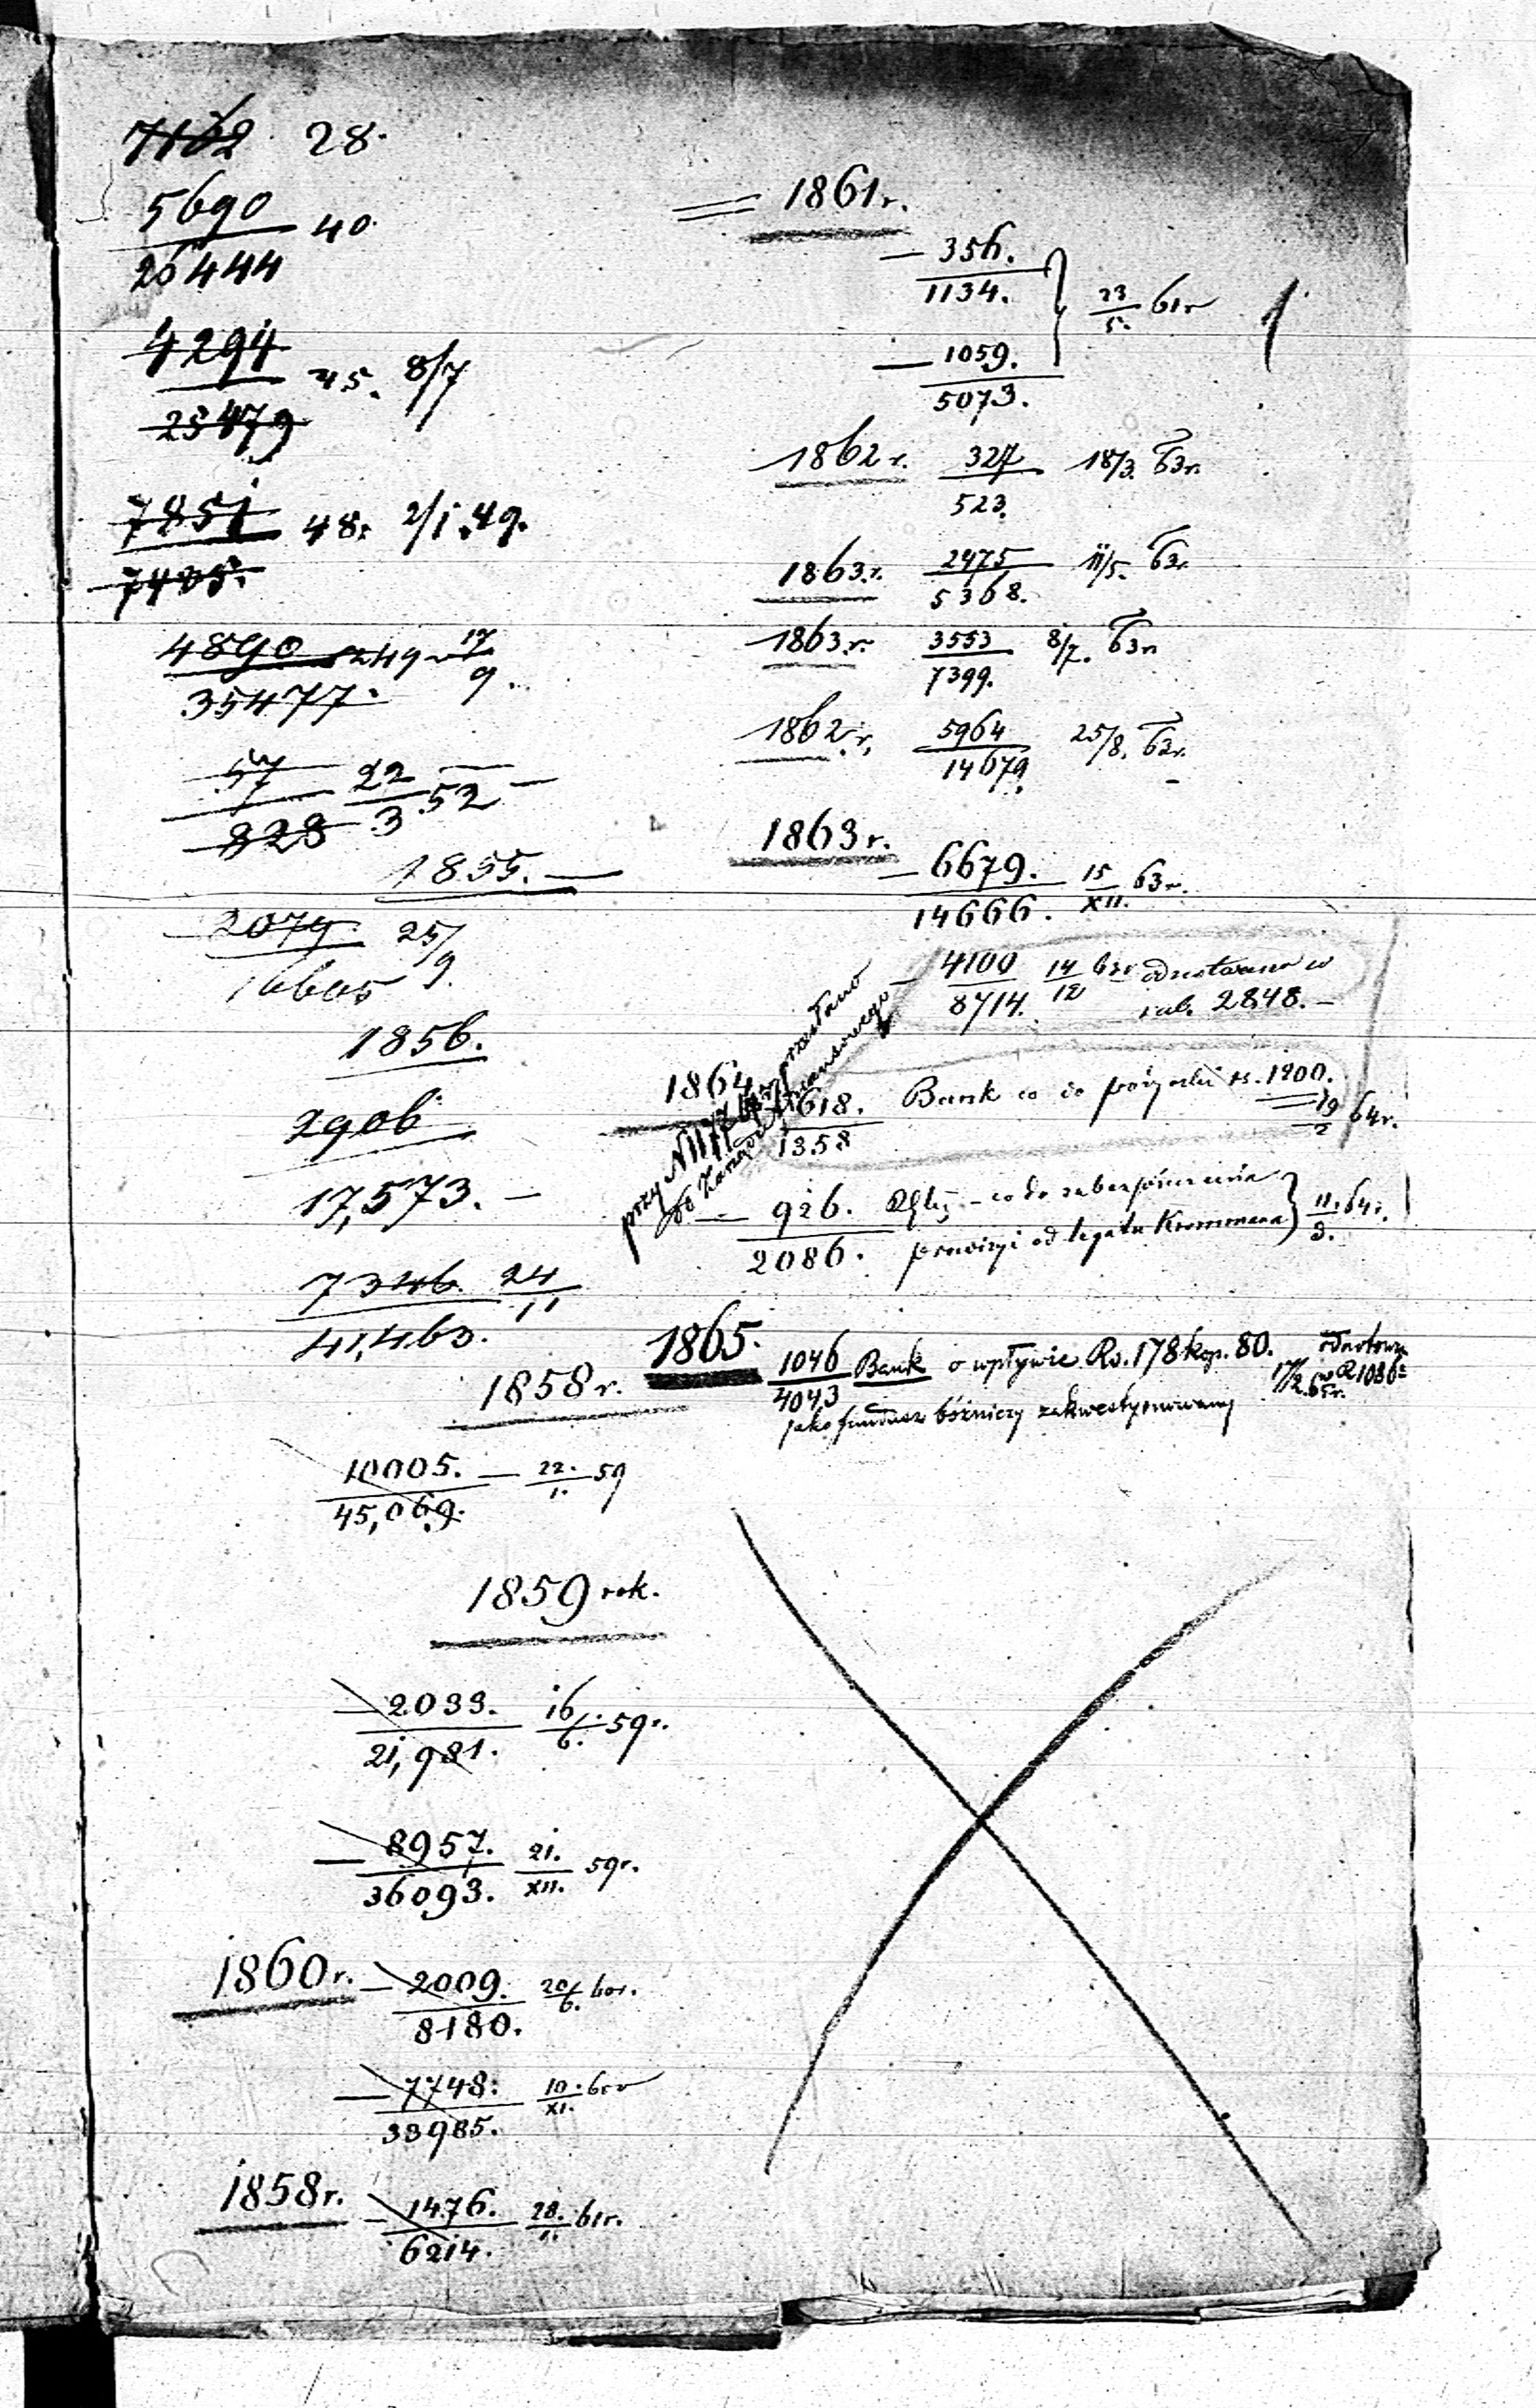 7102 28.
5690 40.
26444
4294 45. 8/7
25479
7851 48. 2/1.49.
7405.
4890 49 17/9.
35477.
57 22/3 52
828
1855.
2079. 25/9.
16605
1856.
2906
17,573.
7346. 24/11
41,463.
1858 r.
10005. 22./1. 59
45,069.
1859 rok.
2033. 16/6. 59 r.
21,981.
8957. 21./XII. 59 r.
36093.
1860 r. 2009. 20/6. 60r.
8180.
7748. 10./XI. 60r
33985.
1858 r. 1476. 28./1. 61r.
6214.
1861 r.
356.
1134. 23/5. 61r 1
1059.
5073.
1862 r. 327 18/3. 63r.
523.
1863. r. 2475 11/5. 63r.
5368.
1863. r. 3553 8/7. 63r.
7399.
1862. r. 5964 25/8. 63r.
14679.
1863 r.
6679. 15/XII. 63r.
14666.
4100 14/12 63r w
8714. 2848.
przy N
do
1864
618. Bank co do pożyczki rs. 1200.
1358 19/2 64r.
926. co do zabezpieczenia
2086. prowizyi od legatu 11./3. 64r.
1865.
1046 Bank o wpływie Rs. 178 kop. 80.
4043 17/2. 65r.
jako fundusz bóżniczy zakwestyonowany